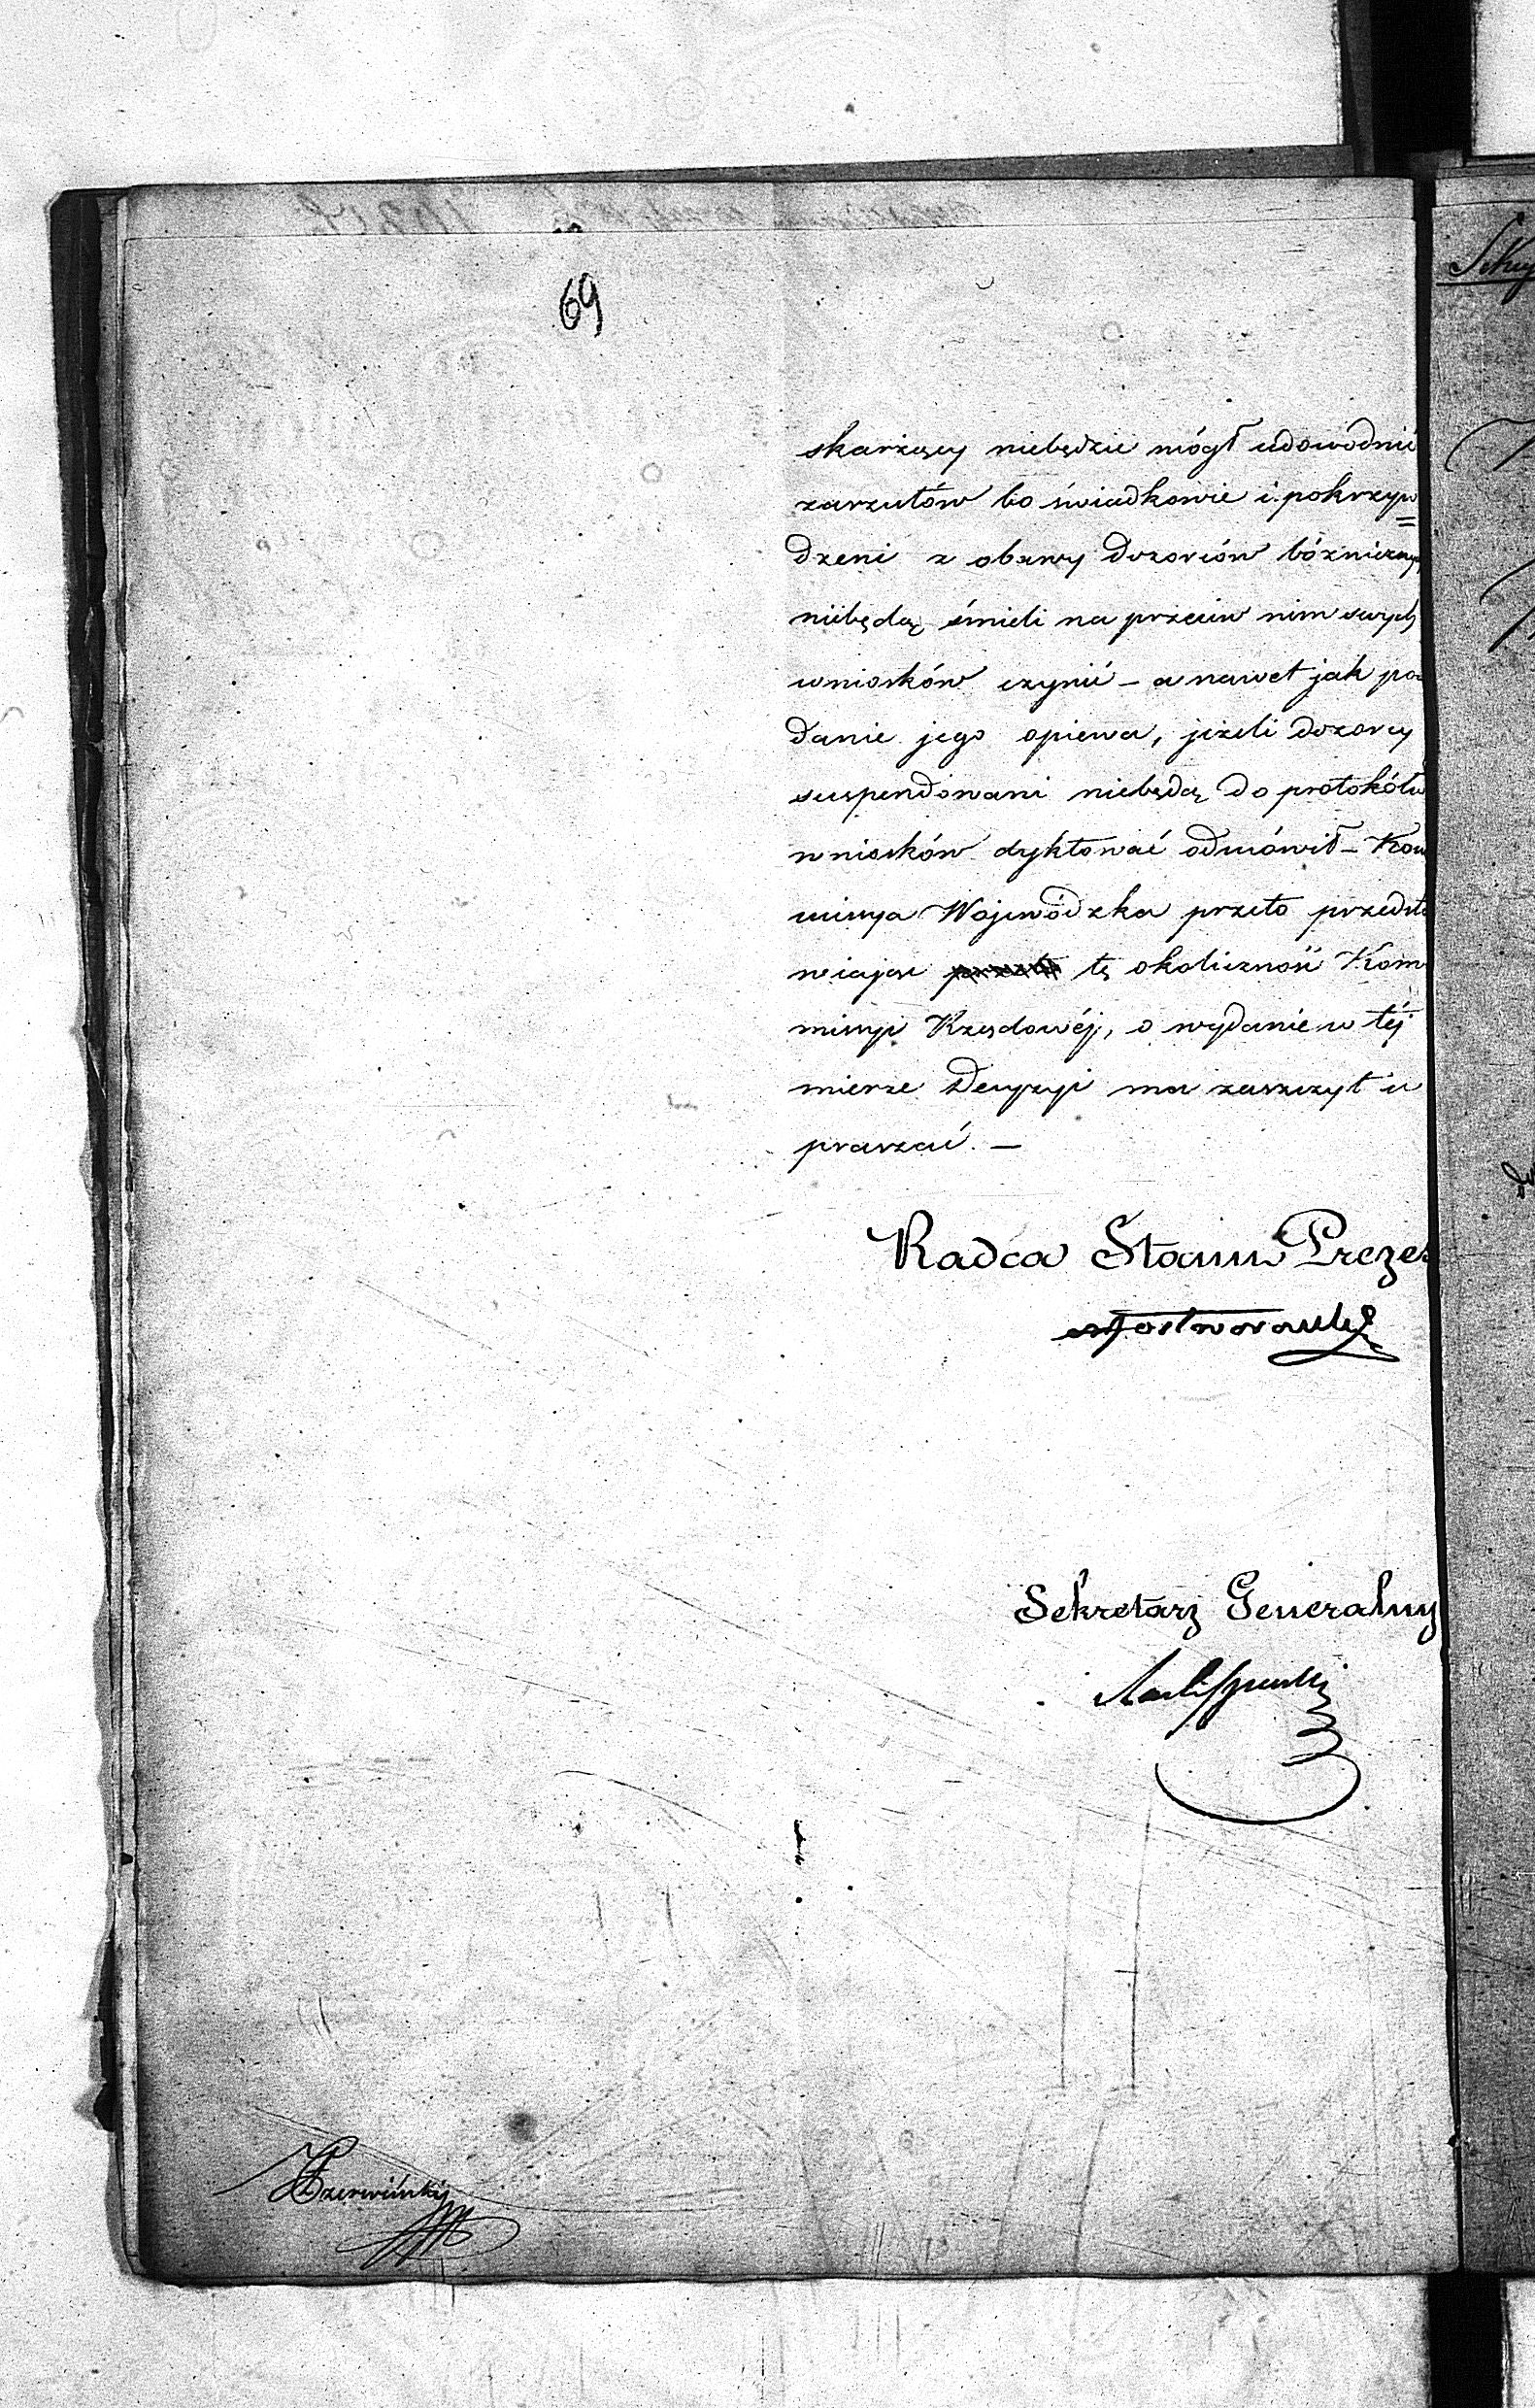 69
skarżący niebędzie mógł udowodnić
zarzutów bo świadkowie i pokrzyw=
dzeni z obawy dozorców bóżniczny
niebędą śmieli na przeciw nim swych
wniosków czynić – a nawet jak po
danie jego opiewa, jeżeli dozorcy
suspendowani niebędą do protokółu
wniosków dyktować odmówił – Kom
missya Wojewódzka przeto przedsta
wiając tę okoliczność Kom
missyi Rządowéj, o wydanie w téj
mierze Decyzyi ma zaszczyt u
praszać. –
Radca Stanu Prezes
Sekretarz Generalny
Czerwiński